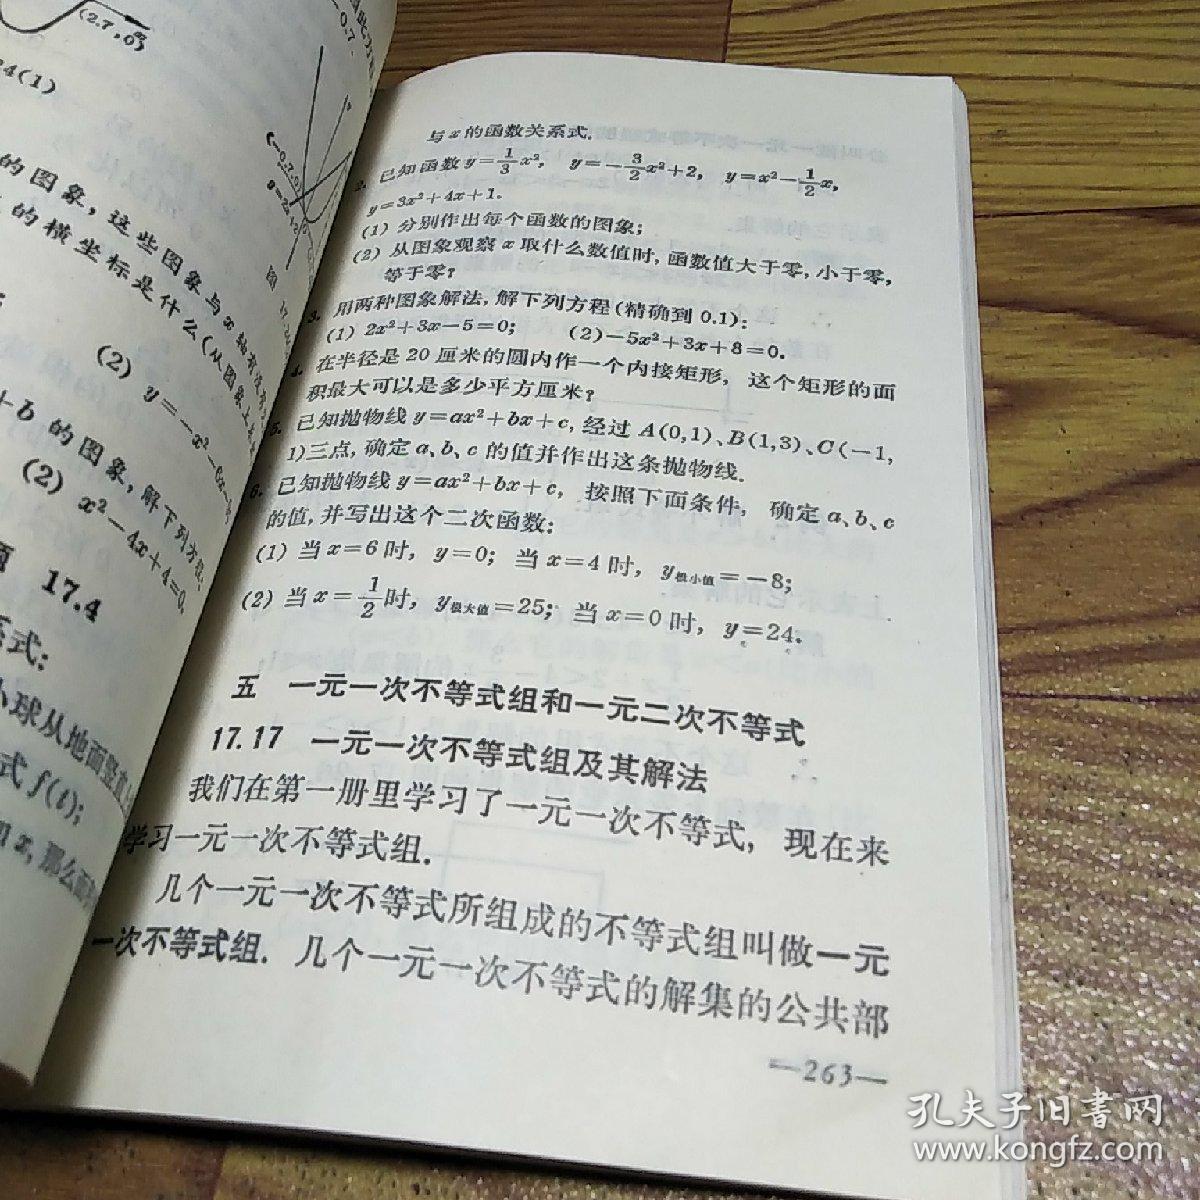 (2.7,0)
24(1)
的图象，这些图象与x轴有没有
的横坐标是什么(从图象上
(2) y=-x²-6x-9.
+b 的图象，解下列方程：
(2) x²-4x+4=0.
题 17.4
系式：
小球从地面竖直
式 f(t)；
和 x, 那么面
与x的函数关系式.
2. 已知函数 y=1/3x², y=-3/2x²+2, y=x²-1/2x,
y=3x²+4x+1.
(1) 分别作出每个函数的图象；
(2) 从图象观察 x 取什么数值时，函数值大于零，小于零，
等于零？
3. 用两种图象解法，解下列方程(精确到 0.1)：
(1) 2x²+3x-5=0； (2)-5x²+3x+8=0.
4. 在半径是 20 厘米的圆内作一个内接矩形，这个矩形的面
积最大可以是多少平方厘米？
5. 已知抛物线 y=ax²+bx+c, 经过 A(0,1)、B(1,3)、C(-1,
1)三点，确定 a、b、c 的值并作出这条抛物线.
6. 已知抛物线 y=ax²+bx+c，按照下面条件，确定 a、b、c
的值，并写出这个二次函数：
(1) 当 x=6 时，y=0；当 x=4 时，y极小值=-8；
(2) 当 x=1/2时，y极大值=25；当 x=0 时，y=24.
五 一元一次不等式组和一元二次不等式
17.17 一元一次不等式组及其解法
我们在第一册里学习了一元一次不等式，现在来
学习一元一次不等式组.
几个一元一次不等式所组成的不等式组叫做一元
一次不等式组. 几个一元一次不等式的解集的公共部
—263—
孔夫子旧书网
www.kongfz.com